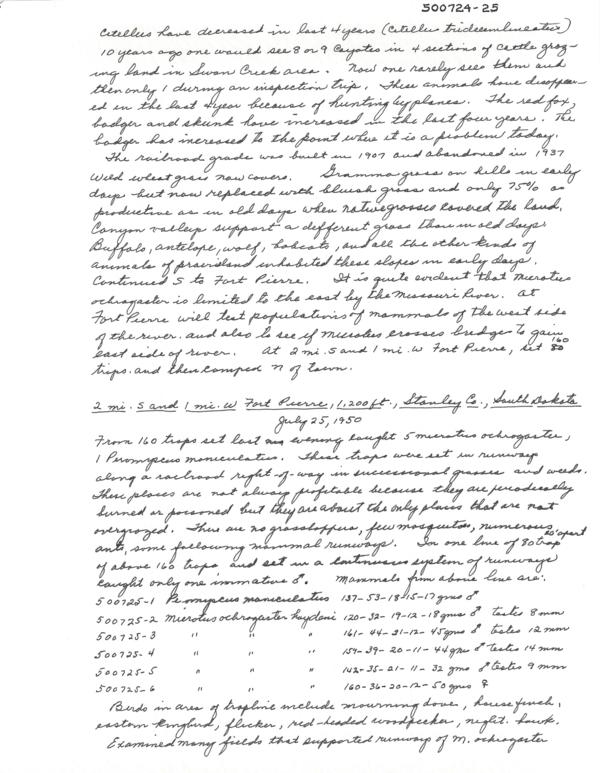 500724-25
Citellus have decreased in last 4 years (Citellus tridecemlineatus)
10 years ago one would see 8 or 9 Coyotes in 4 sections of cattle graz-
ing land in Swan Creek area. Now one rarely sees them and
then only 1 during an inspection trip. These animals have disappear-
ed in the last 4 year because of hunting by planes. The red fox,
badger and skunk have increased in the last four years. The
badger has increased to the point where it is a problem today.
The railroad grade was built in 1907 and abandoned in 1937
Wild wheat grass now covers. Gramma grass on hills in early
days but now replaced with bluish grass and only 75% as
productive as in old days when native grasses covered the land.
Canyon valleys support a different grass than in old days.
Buffalo, antelope, wolf, bobcats, and all the other kinds of
animals of prairieland inhabited these slopes in early days.
Continued S to Fort Pierre. It is quite evident that Microtus
ochrogaster is limited to the east by the Missouri River. At
Fort Pierre will test populations of mammals of the west side
of the river and also to see if microtus crosses bridges to gain
east side of river. At 2 mi. S and 1 mi. W Fort Pierre, set 160
traps and then camped N of town.
2 mi. S and 1 mi. W Fort Pierre, 1,200 ft., Stanley Co., South Dakota
July 25, 1950
From 160 traps set last evening caught 5 microtus ochrogaster,
1 Peromyscus maniculatus. These traps were set in runways
along a railroad right-of-way in successional grasses and weeds.
These places are not always profitable because they are periodically
burned or poisoned but they are about the only places that are not
overgrazed. There are no grasshoppers, few mosquitos, numerous
ants, some following mammal runways. In one line of 80 traps 20' apart
of above 160 traps, and set in a continuous system of runways
caught only one immature ♂. Mammals from above line are:
500725-1 Peromyscus maniculatus 137-53-18-15-17 gms ♂
500725-2 Microtus ochrogaster haydeni 120-32-19-12-18 gms ♂ testes 8 mm
500725-3 " " " 161-44-21-12-45 gms ♂ testes 12 mm
500725-4 " " " 159-39-20-11-44 gms ♂ testes 14 mm
500725-5 " " " 142-35-21-11-32 gms ♂ testes 9 mm
500725-6 " " " 160-36-20-12-50 gms ♀
Birds in area of trapline include mourning dove, house finch,
eastern kingbird, flicker, red-headed woodpecker, night hawk.
Examined many fields that supported runways of M. ochrogaster